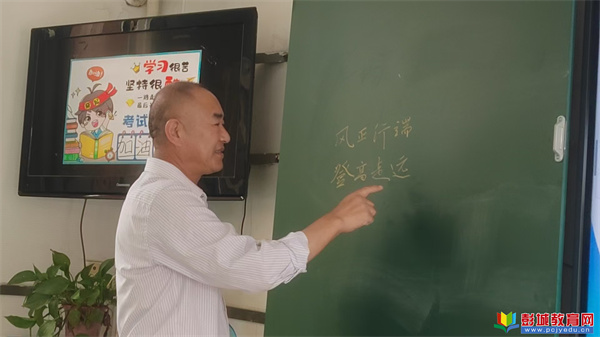 学习很苦
坚持很
考试
加油
风正行端
登高走远
彭城教育网
www.pcjyedu.cn